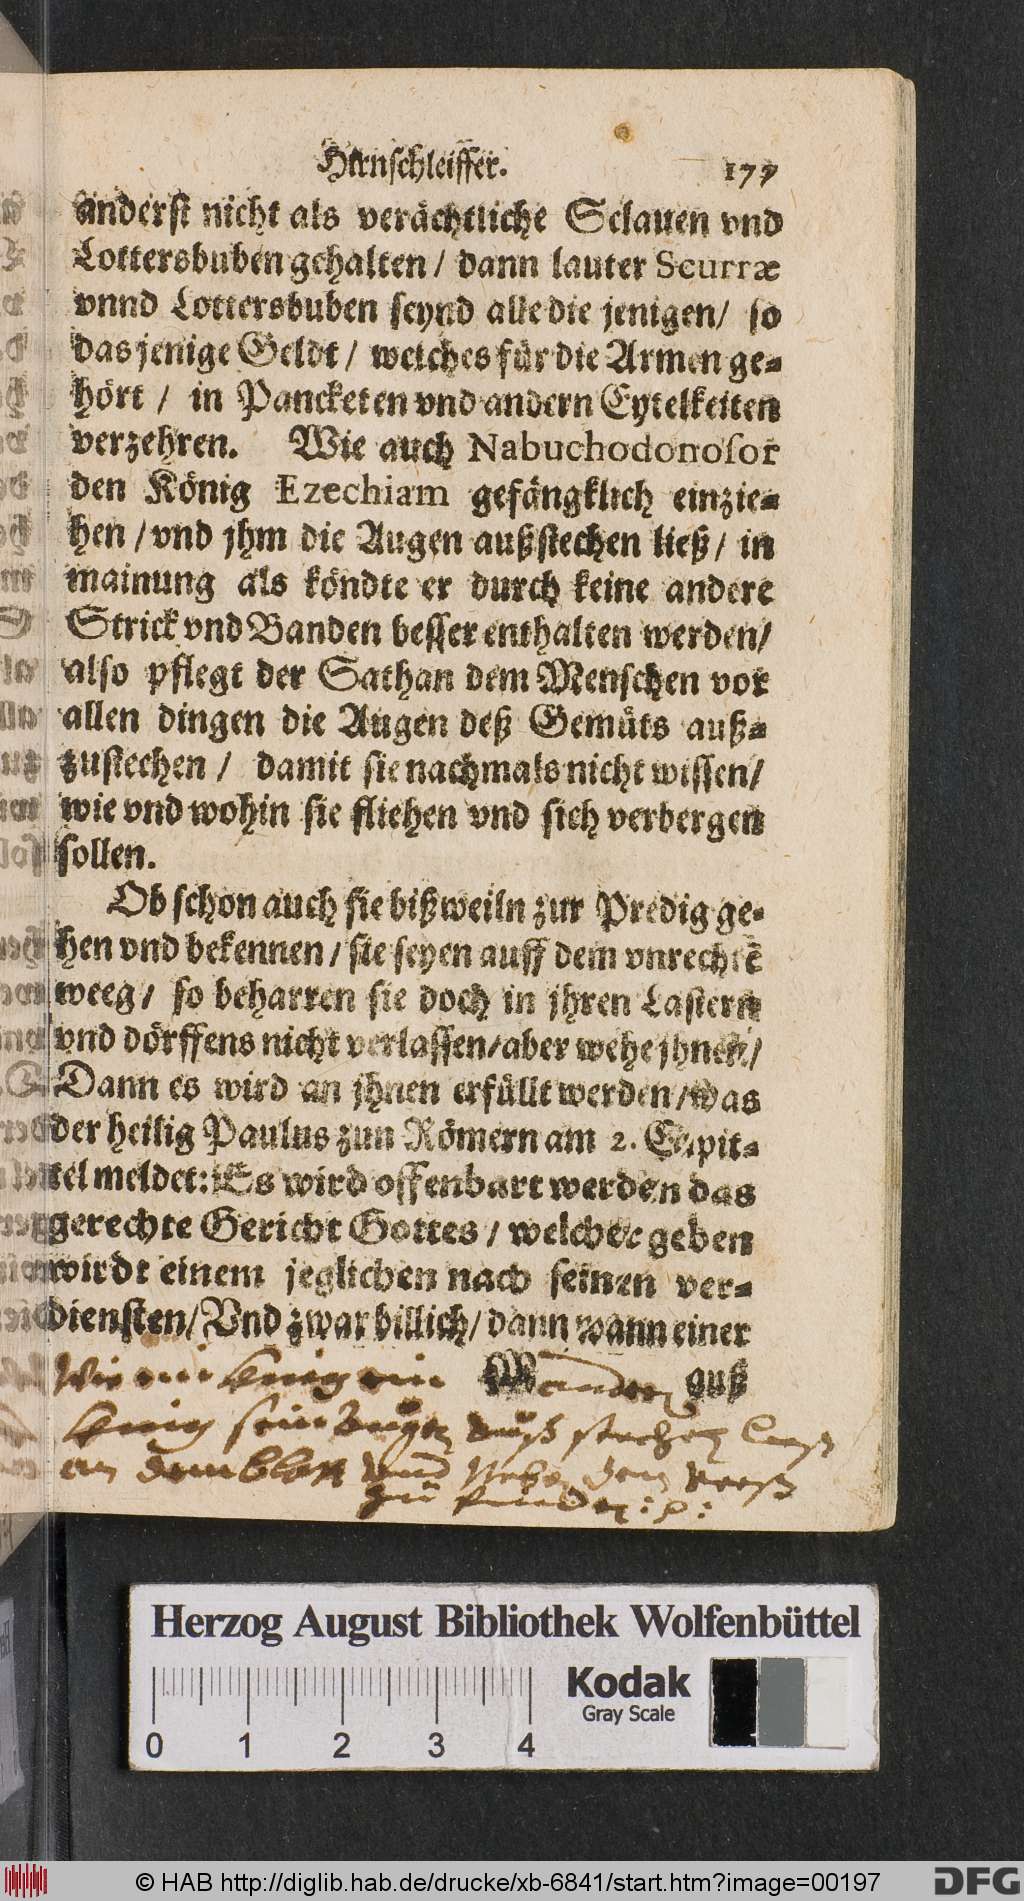 Hirnschleiffer. 177
anderst nicht als verächtliche Sclauen vnd
Lottersbuben gehalten / dann lauter Scurræ
vnnd Lottersbuben seynd alle die jenigen / so
das jenige Geldt / welches für die Armen ge-
hört / in Pancketen vnd andern Eytelkeiten
verzehren. Wie auch Nabuchodonosor
den König Ezechiam gefängklich einzie-
hen / vnd jhm die Augen außstechen ließ / in
mainung als köndte er durch keine andere
Strick vnd Banden besser enthalten werden /
also pflegt der Sathan dem Menschen vor
allen dingen die Augen deß Gemüts auß-
zustechen / damit sie nachmals nicht wissen /
wie vnd wohin sie fliehen vnd sich verbergen
sollen.
Ob schon auch sie bißweiln zur Predig ge-
hen vnd bekennen / sie seyen auff dem vnrechtẽ
weeg / so beharren sie doch in jhren Lastern
vnd dörffens nicht verlassen / aber wehe jhnen /
Dann es wird an jhnen erfüllt werden / was
der heilig Paulus zun Römern am 2. Capit-
tel meldet: Es wird offenbart werden das
gerechte Gericht Gottes / welcher geben
wirdt einem jeglichen nach seinen ver-
diensten / Vnd zwar billich / dann wann einer
auß
Wie ein König ein andern
König sein augen auß stechen lies
an dem blatt vnd
zu finden
Herzog August Bibliothek Wolfenbüttel
Kodak
Gray Scale
0 1 2 3 4
© HAB http://diglib.hab.de/drucke/xb-6841/start.htm?image=00197
DFG